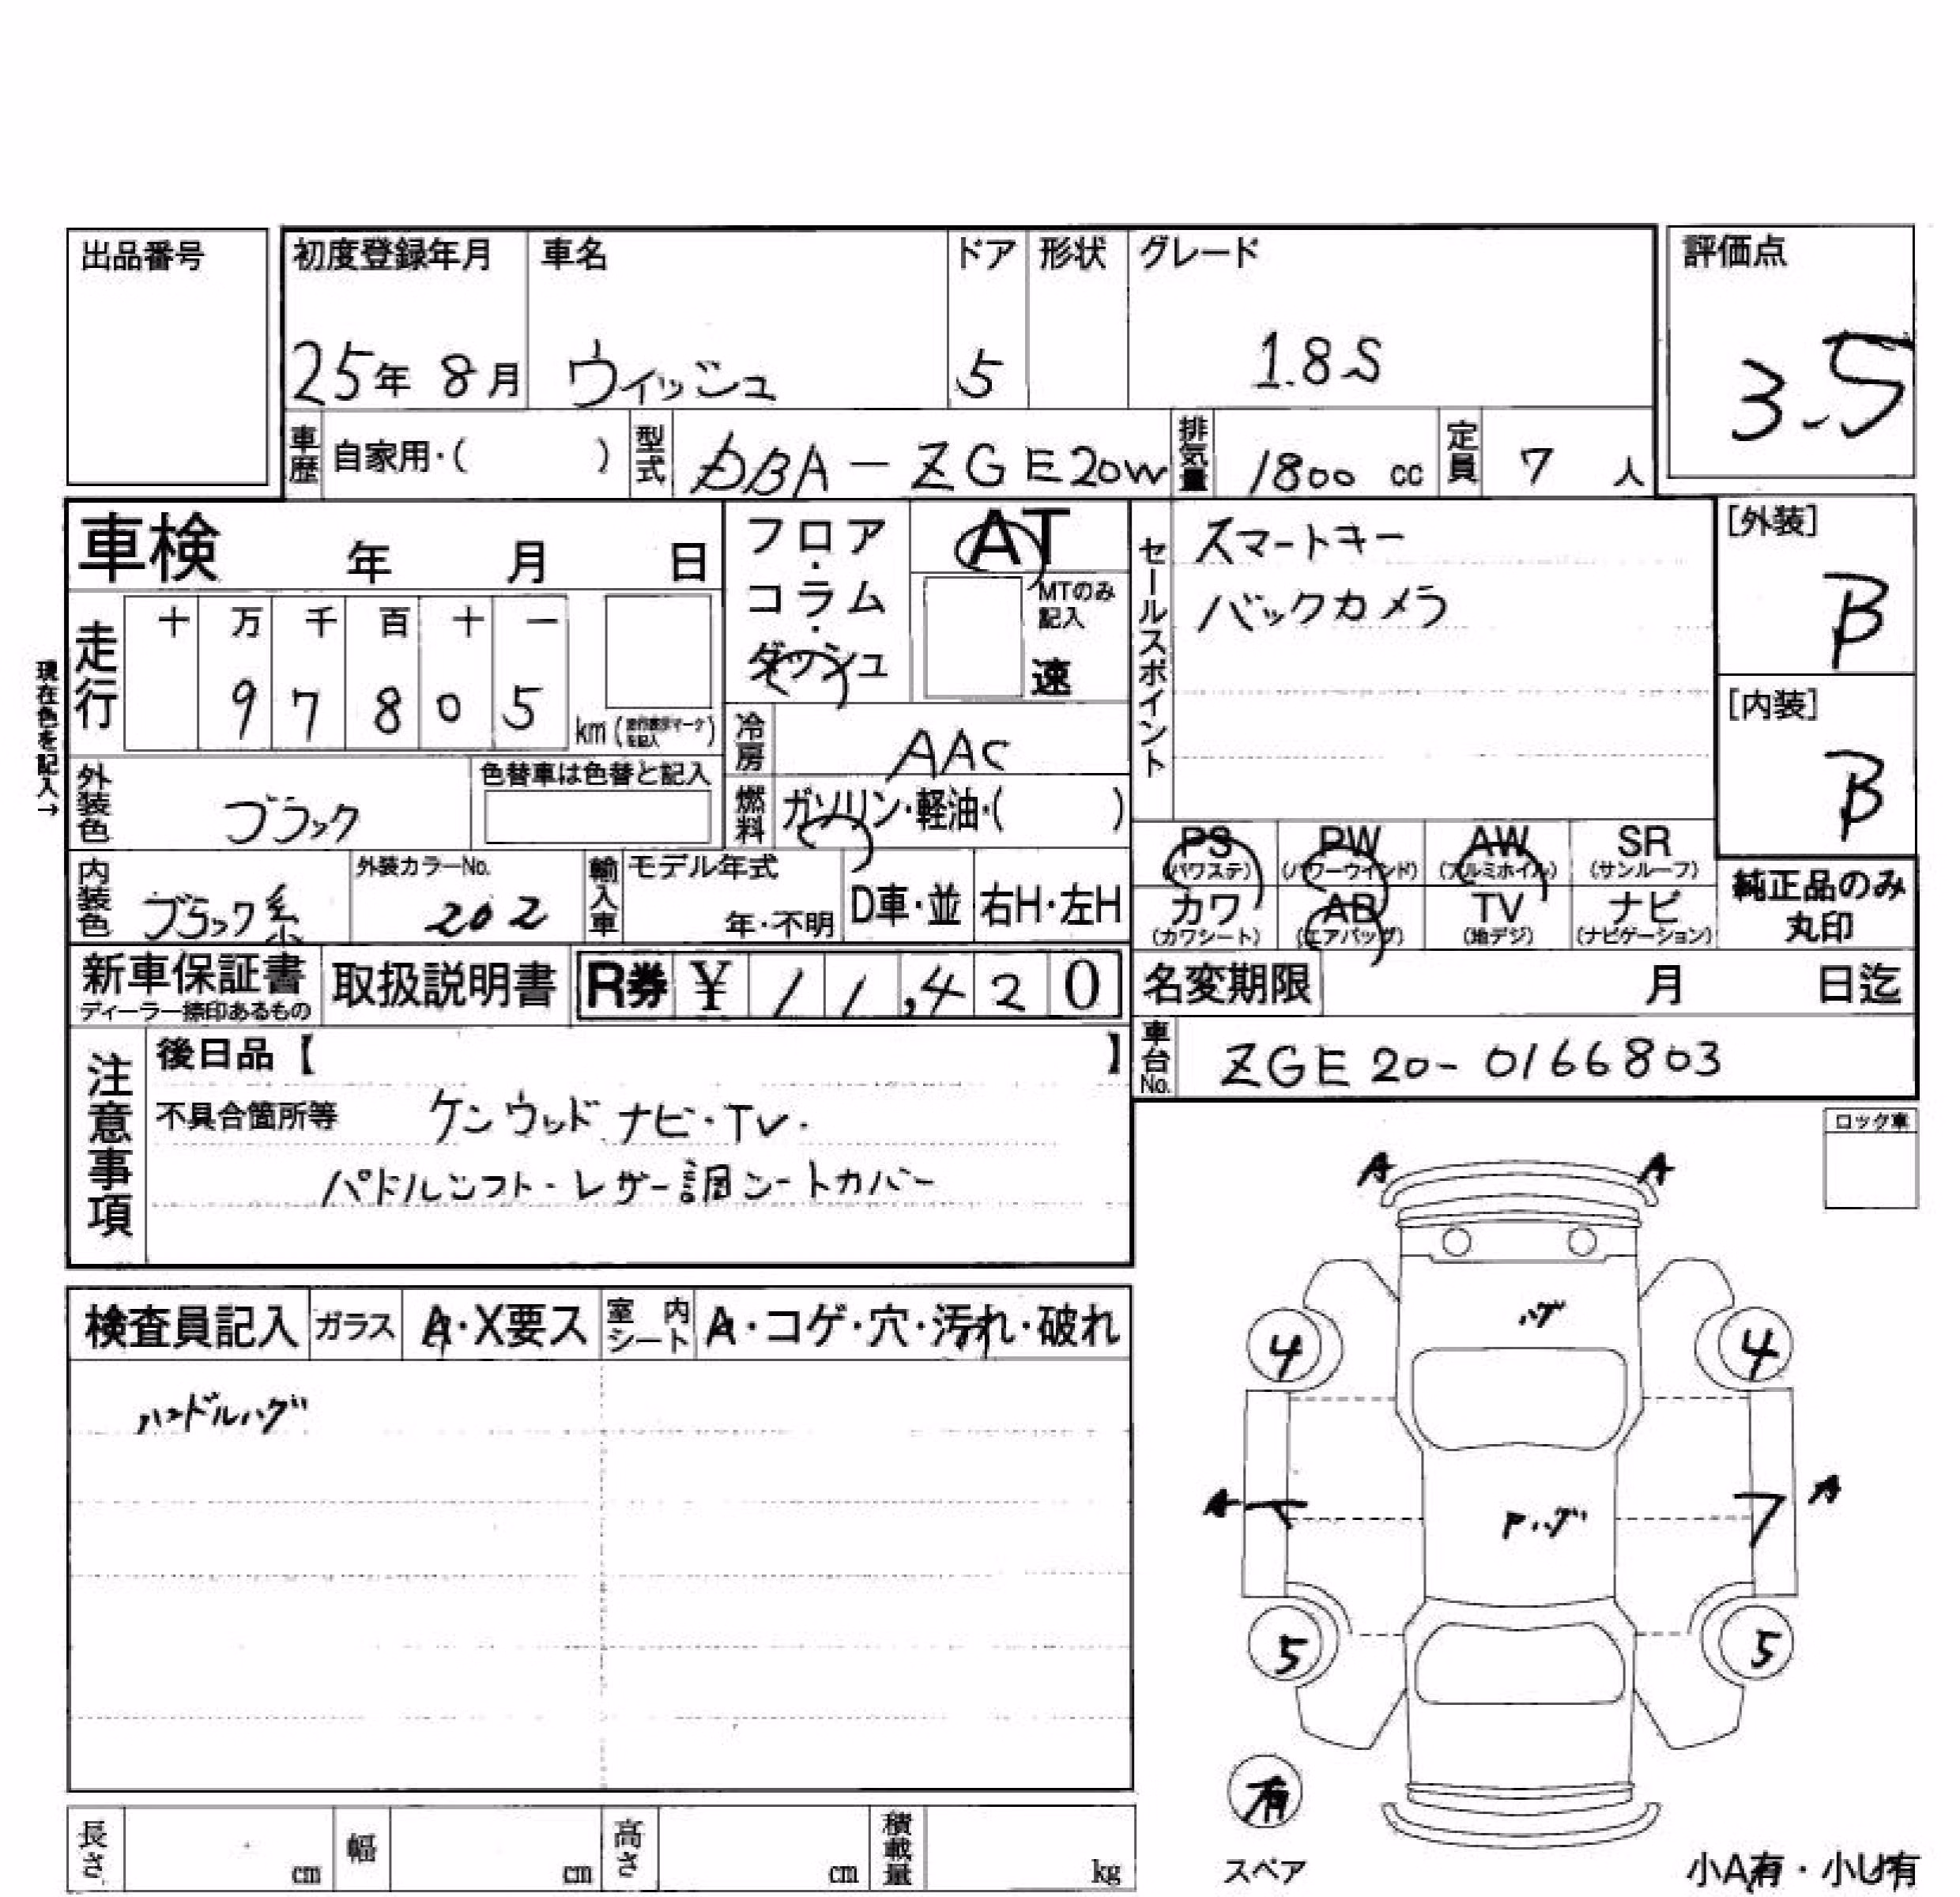 出品番号
初度登録年月 車名 ドア 形状 グレード 評価点
25年 8月 ウィッシュ 5 1.8S 3.5
車歴 自家用・( ) 型式 DBA-ZGE20W 排気量 1800 cc 定員 7 人
車検 年 月 日
フロア・コラム・ダッシュ
AT
MTのみ記入
速
セールスポイント
スマートキー
バックカメラ
[外装]
B
[内装]
B
現在色を記入→
走行 十 万 千 百 十 一
9 7 8 0 5 km
冷房 AAC
外装色 ブラック 色替車は色替と記入
燃料 ガソリン・軽油・( )
PS (パワステ) PW (パワーウインド) AW (アルミホイル) SR (サンルーフ)
カワ (カワシート) AB (エアバッグ) TV (地デジ) ナビ (ナビゲーション)
純正品のみ丸印
内装色 ブラック系 外装カラーNo. 202 輸入車 モデル年式 年・不明 D車・並 右H・左H
新車保証書 ディーラー捺印あるもの 取扱説明書 R券 ¥ 11,420
名変期限 月 日迄
車台No. ZGE20-0166803
注意事項
後日品【 】
不具合箇所等 ケンウッドナビ・TV.
パドルシフト・レザー調シートカバー
ロック車
A A
検査員記入 ガラス A・X要ス 室内シート A・コゲ・穴・汚れ・破れ
ハンドルハゲ
ハゲ
4 4
A A
Pハゲ
5 5
有
スペア
長さ cm 幅 cm 高さ cm 積載量 kg
小A有・小U有